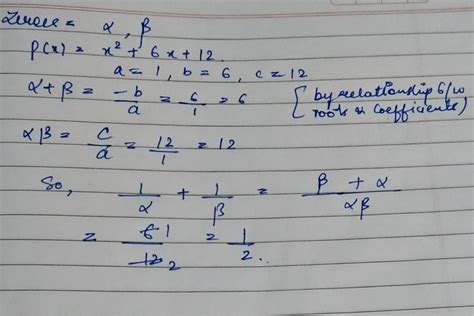 Zeroes = α, β
P(x) = x² + 6x + 12.
a = 1, b = 6, c = 12
α + β = -b/a = 6/1 = 6 { by relationship b/w roots & coefficients }
αβ = c/a = 12/1 = 12
So, 1/α + 1/β = β + α/αβ
= 6 1/12 2 = 1/2..